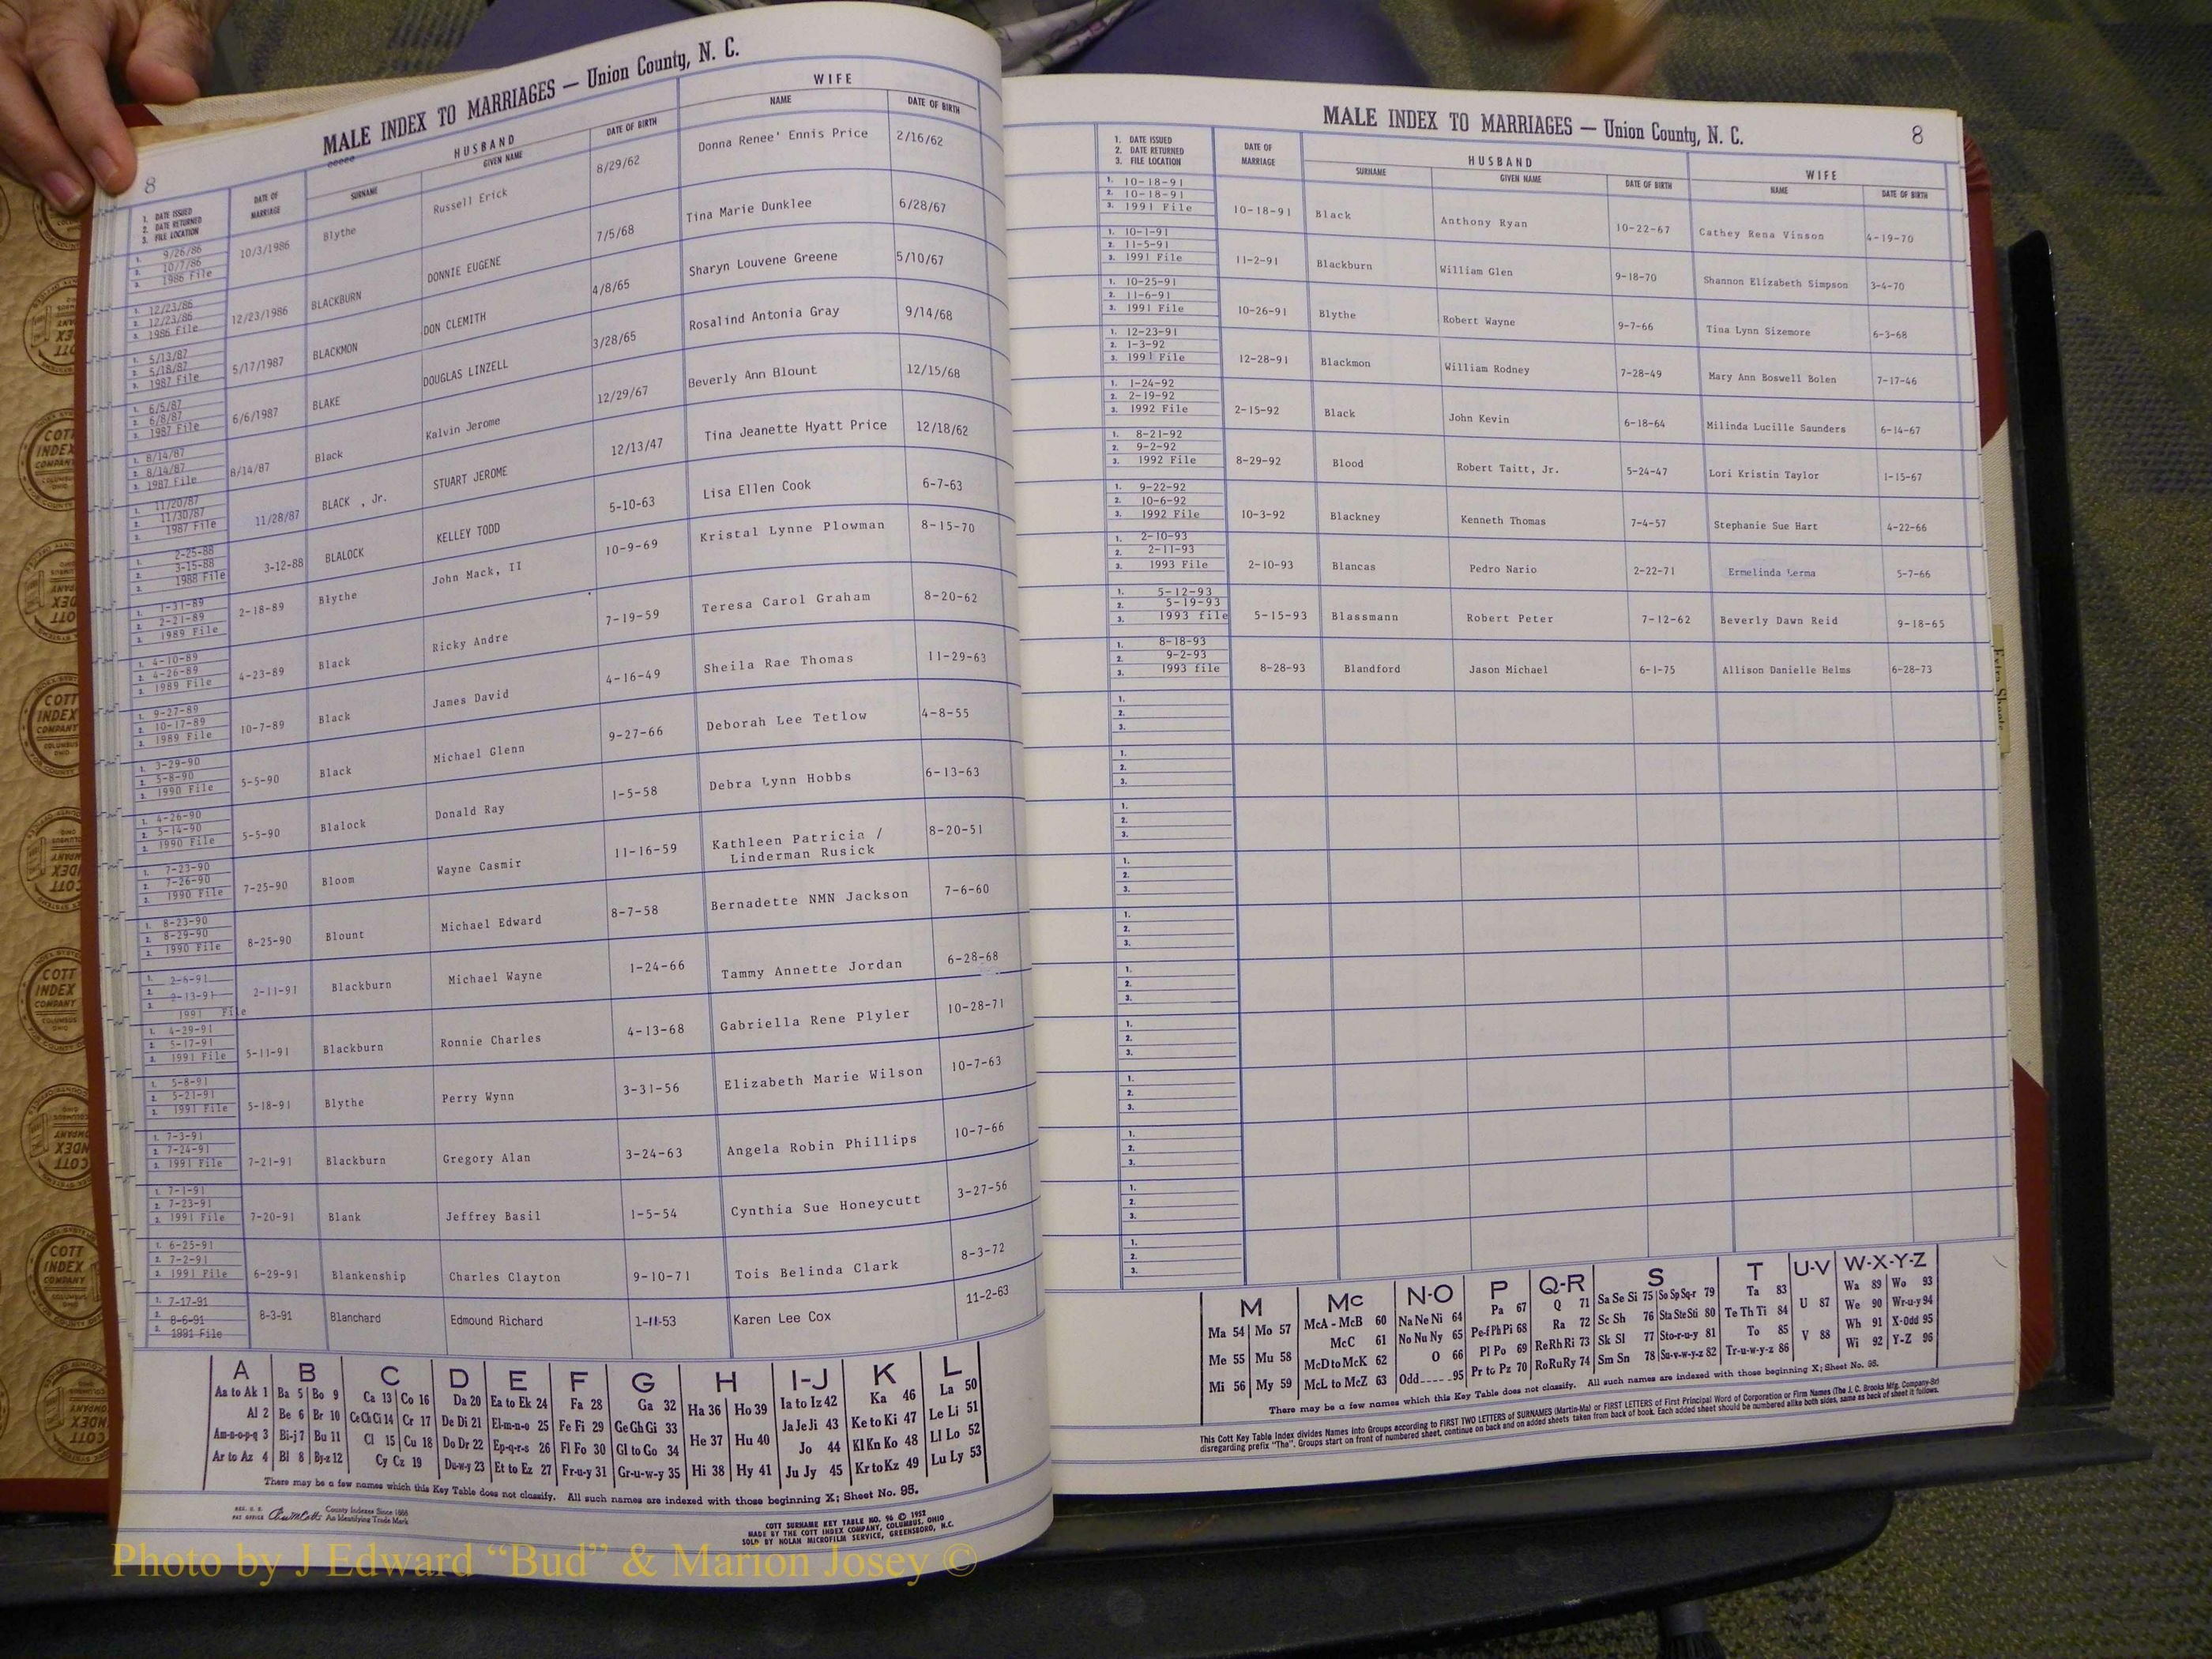 MALE INDEX TO MARRIAGES — Union County, N. C.
8
1. DATE ISSUED
2. DATE RETURNED
3. FILE LOCATION
DATE OF MARRIAGE
HUSBAND
SURNAME GIVEN NAME DATE OF BIRTH
WIFE
NAME DATE OF BIRTH
1. 9/26/86
2. 10/7/86
3. 1986 File
10/3/1986 Blythe Russell Erick 8/29/62 Donna Renee' Ennis Price 2/16/62
1. 12/23/86
2. 12/23/86
3. 1986 File
12/23/1986 BLACKBURN DONNIE EUGENE 7/5/68 Tina Marie Dunklee 6/28/67
1. 5/13/87
2. 5/18/87
3. 1987 File
5/17/1987 BLACKMON DON CLEMITH 4/8/65 Sharyn Louvene Greene 5/10/67
1. 6/5/87
2. 6/8/87
3. 1987 File
6/6/1987 BLAKE DOUGLAS LINZELL 3/28/65 Rosalind Antonia Gray 9/14/68
1. 8/14/87
2. 8/14/87
3. 1987 File
8/14/87 Black Kalvin Jerome 12/29/67 Beverly Ann Blount 12/15/68
1. 11/20/87
2. 11/30/87
3. 1987 File
11/28/87 BLACK , Jr. STUART JEROME 12/13/47 Tina Jeanette Hyatt Price 12/18/62
1. 2-25-88
2. 3-15-88
3. 1988 File
3-12-88 BLALOCK KELLEY TODD 5-10-63 Lisa Ellen Cook 6-7-63
1. 1-31-89
2. 2-21-89
3. 1989 File
2-18-89 Blythe John Mack, II 10-9-69 Kristal Lynne Plowman 8-15-70
1. 4-10-89
2. 4-26-89
3. 1989 File
4-23-89 Black Ricky Andre 7-19-59 Teresa Carol Graham 8-20-62
1. 9-27-89
2. 10-17-89
3. 1989 File
10-7-89 Black James David 4-16-49 Sheila Rae Thomas 11-29-63
1. 3-29-90
2. 5-8-90
3. 1990 File
5-5-90 Black Michael Glenn 9-27-66 Deborah Lee Tetlow 4-8-55
1. 4-26-90
2. 5-14-90
3. 1990 File
5-5-90 Blalock Donald Ray 1-5-58 Debra Lynn Hobbs 6-13-63
1. 7-23-90
2. 7-26-90
3. 1990 File
7-25-90 Bloom Wayne Casmir 11-16-59 Kathleen Patricia / 8-20-51
Linderman Rusick
1. 8-23-90
2. 8-29-90
3. 1990 File
8-25-90 Blount Michael Edward 8-7-58 Bernadette NMN Jackson 7-6-60
1. 2-6-91
2. 2-13-91
3. 1991 File
2-11-91 Blackburn Michael Wayne 1-24-66 Tammy Annette Jordan 6-28-68
1. 4-29-91
2. 5-17-91
3. 1991 File
5-11-91 Blackburn Ronnie Charles 4-13-68 Gabriella Rene Plyler 10-28-71
1. 5-8-91
2. 5-21-91
3. 1991 File
5-18-91 Blythe Perry Wynn 3-31-56 Elizabeth Marie Wilson 10-7-63
1. 7-3-91
2. 7-24-91
3. 1991 File
7-21-91 Blackburn Gregory Alan 3-24-63 Angela Robin Phillips 10-7-66
1. 7-1-91
2. 7-23-91
3. 1991 File
7-20-91 Blank Jeffrey Basil 1-5-54 Cynthia Sue Honeycutt 3-27-56
1. 6-25-91
2. 7-2-91
3. 1991 File
6-29-91 Blankenship Charles Clayton 9-10-71 Tois Belinda Clark 8-3-72
1. 7-17-91
2. 8-6-91
3. 1991 File
8-3-91 Blanchard Edmound Richard 1-11-53 Karen Lee Cox 11-2-63
A B C D E F G H I-J K L
Aa to Ak 1 Ba 5 Bo 9 Ca 13 Co 16 Da 20 Ea to Ek 24 Fa 28 Ga 32 Ha 36 Ho 39 Ia to Iz 42 Ka 46 La 50
Al 2 Be 6 Br 10 Ce Ch Ci 14 Cr 17 De Di 21 El-m-n-o 25 Fe Fi 29 Ge Gh Gi 33 He 37 Hu 40 Ja Je Ji 43 Ke to Ki 47 Le Li 51
Am-n-o-p-q 3 Bi-j 7 Bu 11 Cl 15 Cu 18 Do Dr 22 Ep-q-r-s 26 Fl Fo 30 Gl to Go 34 Hi 38 Hy 41 Jo 44 Kl Kn Ko 48 Ll Lo 52
Ar to Az 4 Bl 8 By-z 12 Cy Cz 19 Du-w-y 23 Et to Ez 27 Fr-u-y 31 Gr-u-w-y 35 Ju Jy 45 Kr to Kz 49 Lu Ly 53
There may be a few names which this Key Table does not classify. All such names are indexed with those beginning X; Sheet No. 95.
REG. U. S. PAT OFFICE
County Indexes Since 1888
An Identifying Trade Mark
COTT SURNAME KEY TABLE NO. 96 © 1952
MADE BY THE COTT INDEX COMPANY, COLUMBUS, OHIO
SOLD BY NOLAN MICROFILM SERVICE, GREENSBORO, N.C.
Photo by J Edward “Bud” & Marion Josey ©
MALE INDEX TO MARRIAGES — Union County, N. C.
8
1. DATE ISSUED
2. DATE RETURNED
3. FILE LOCATION
DATE OF MARRIAGE
HUSBAND
SURNAME GIVEN NAME DATE OF BIRTH
WIFE
NAME DATE OF BIRTH
1. 10-18-91
2. 10-18-91
3. 1991 File
10-18-91 Black Anthony Ryan 10-22-67 Cathey Rena Vinson 4-19-70
1. 10-1-91
2. 11-5-91
3. 1991 File
11-2-91 Blackburn William Glen 9-18-70 Shannon Elizabeth Simpson 3-4-70
1. 10-25-91
2. 11-6-91
3. 1991 File
10-26-91 Blythe Robert Wayne 9-7-66 Tina Lynn Sizemore 6-3-68
1. 12-23-91
2. 1-3-92
3. 1991 File
12-28-91 Blackmon William Rodney 7-28-49 Mary Ann Boswell Bolen 7-17-46
1. 1-24-92
2. 2-19-92
3. 1992 File
2-15-92 Black John Kevin 6-18-64 Milinda Lucille Saunders 6-14-67
1. 8-21-92
2. 9-2-92
3. 1992 File
8-29-92 Blood Robert Taitt, Jr. 5-24-47 Lori Kristin Taylor 1-15-67
1. 9-22-92
2. 10-6-92
3. 1992 File
10-3-92 Blackney Kenneth Thomas 7-4-57 Stephanie Sue Hart 4-22-66
1. 2-10-93
2. 2-11-93
3. 1993 File
2-10-93 Blancas Pedro Nario 2-22-71 Ermelinda Lerma 5-7-66
1. 5-12-93
2. 5-19-93
3. 1993 file
5-15-93 Blassmann Robert Peter 7-12-62 Beverly Dawn Reid 9-18-65
1. 8-18-93
2. 9-2-93
3. 1993 file
8-28-93 Blandford Jason Michael 6-1-75 Allison Danielle Helms 6-28-73
1.
2.
3.
1.
2.
3.
1.
2.
3.
1.
2.
3.
1.
2.
3.
1.
2.
3.
1.
2.
3.
1.
2.
3.
1.
2.
3.
1.
2.
3.
1.
2.
3.
M Mc N-O P Q-R S T U-V W-X-Y-Z
Ma 54 Mo 57 McA - McB 60 Na Ne Ni 64 Pa 67 Q 71 Sa Se Si 75 So Sp Sq-r 79 Ta 83 U 87 Wa 89 Wo 93
Me 55 Mu 58 McC 61 No Nu Ny 65 Pe-f Ph Pi 68 Ra 72 Sc Sh 76 Sta Ste Sti 80 Te Th Ti 84 V 88 We 90 Wr-u-y 94
Mi 56 My 59 McD to McK 62 O 66 Pl Po 69 Re Rh Ri 73 Sk Sl 77 Sto-r-u-y 81 To 85 Wh 91 X-Odd 95
McL to McZ 63 Odd 95 Pr to Pz 70 Ro Ru Ry 74 Sm Sn 78 Su-v-w-y-z 82 Tr-u-w-y-z 86 Wi 92 Y-Z 96
There may be a few names which this Key Table does not classify. All such names are indexed with those beginning X; Sheet No. 95.
This Cott Key Table Index divides Names into Groups according to FIRST TWO LETTERS of SURNAMES (Martin-Ma) or FIRST LETTERS of First Principal Word of Corporation or Firm Names (The J. C. Brooks Mfg. Company-Br)
disregarding prefix "The". Groups start on front of numbered sheet, continue on back and on added sheets taken from back of book. Each added sheet should be numbered alike both sides, same as back of sheet it follows.
Extra Sheets
COTT
INDEX
COMPANY
COLUMBUS
OHIO